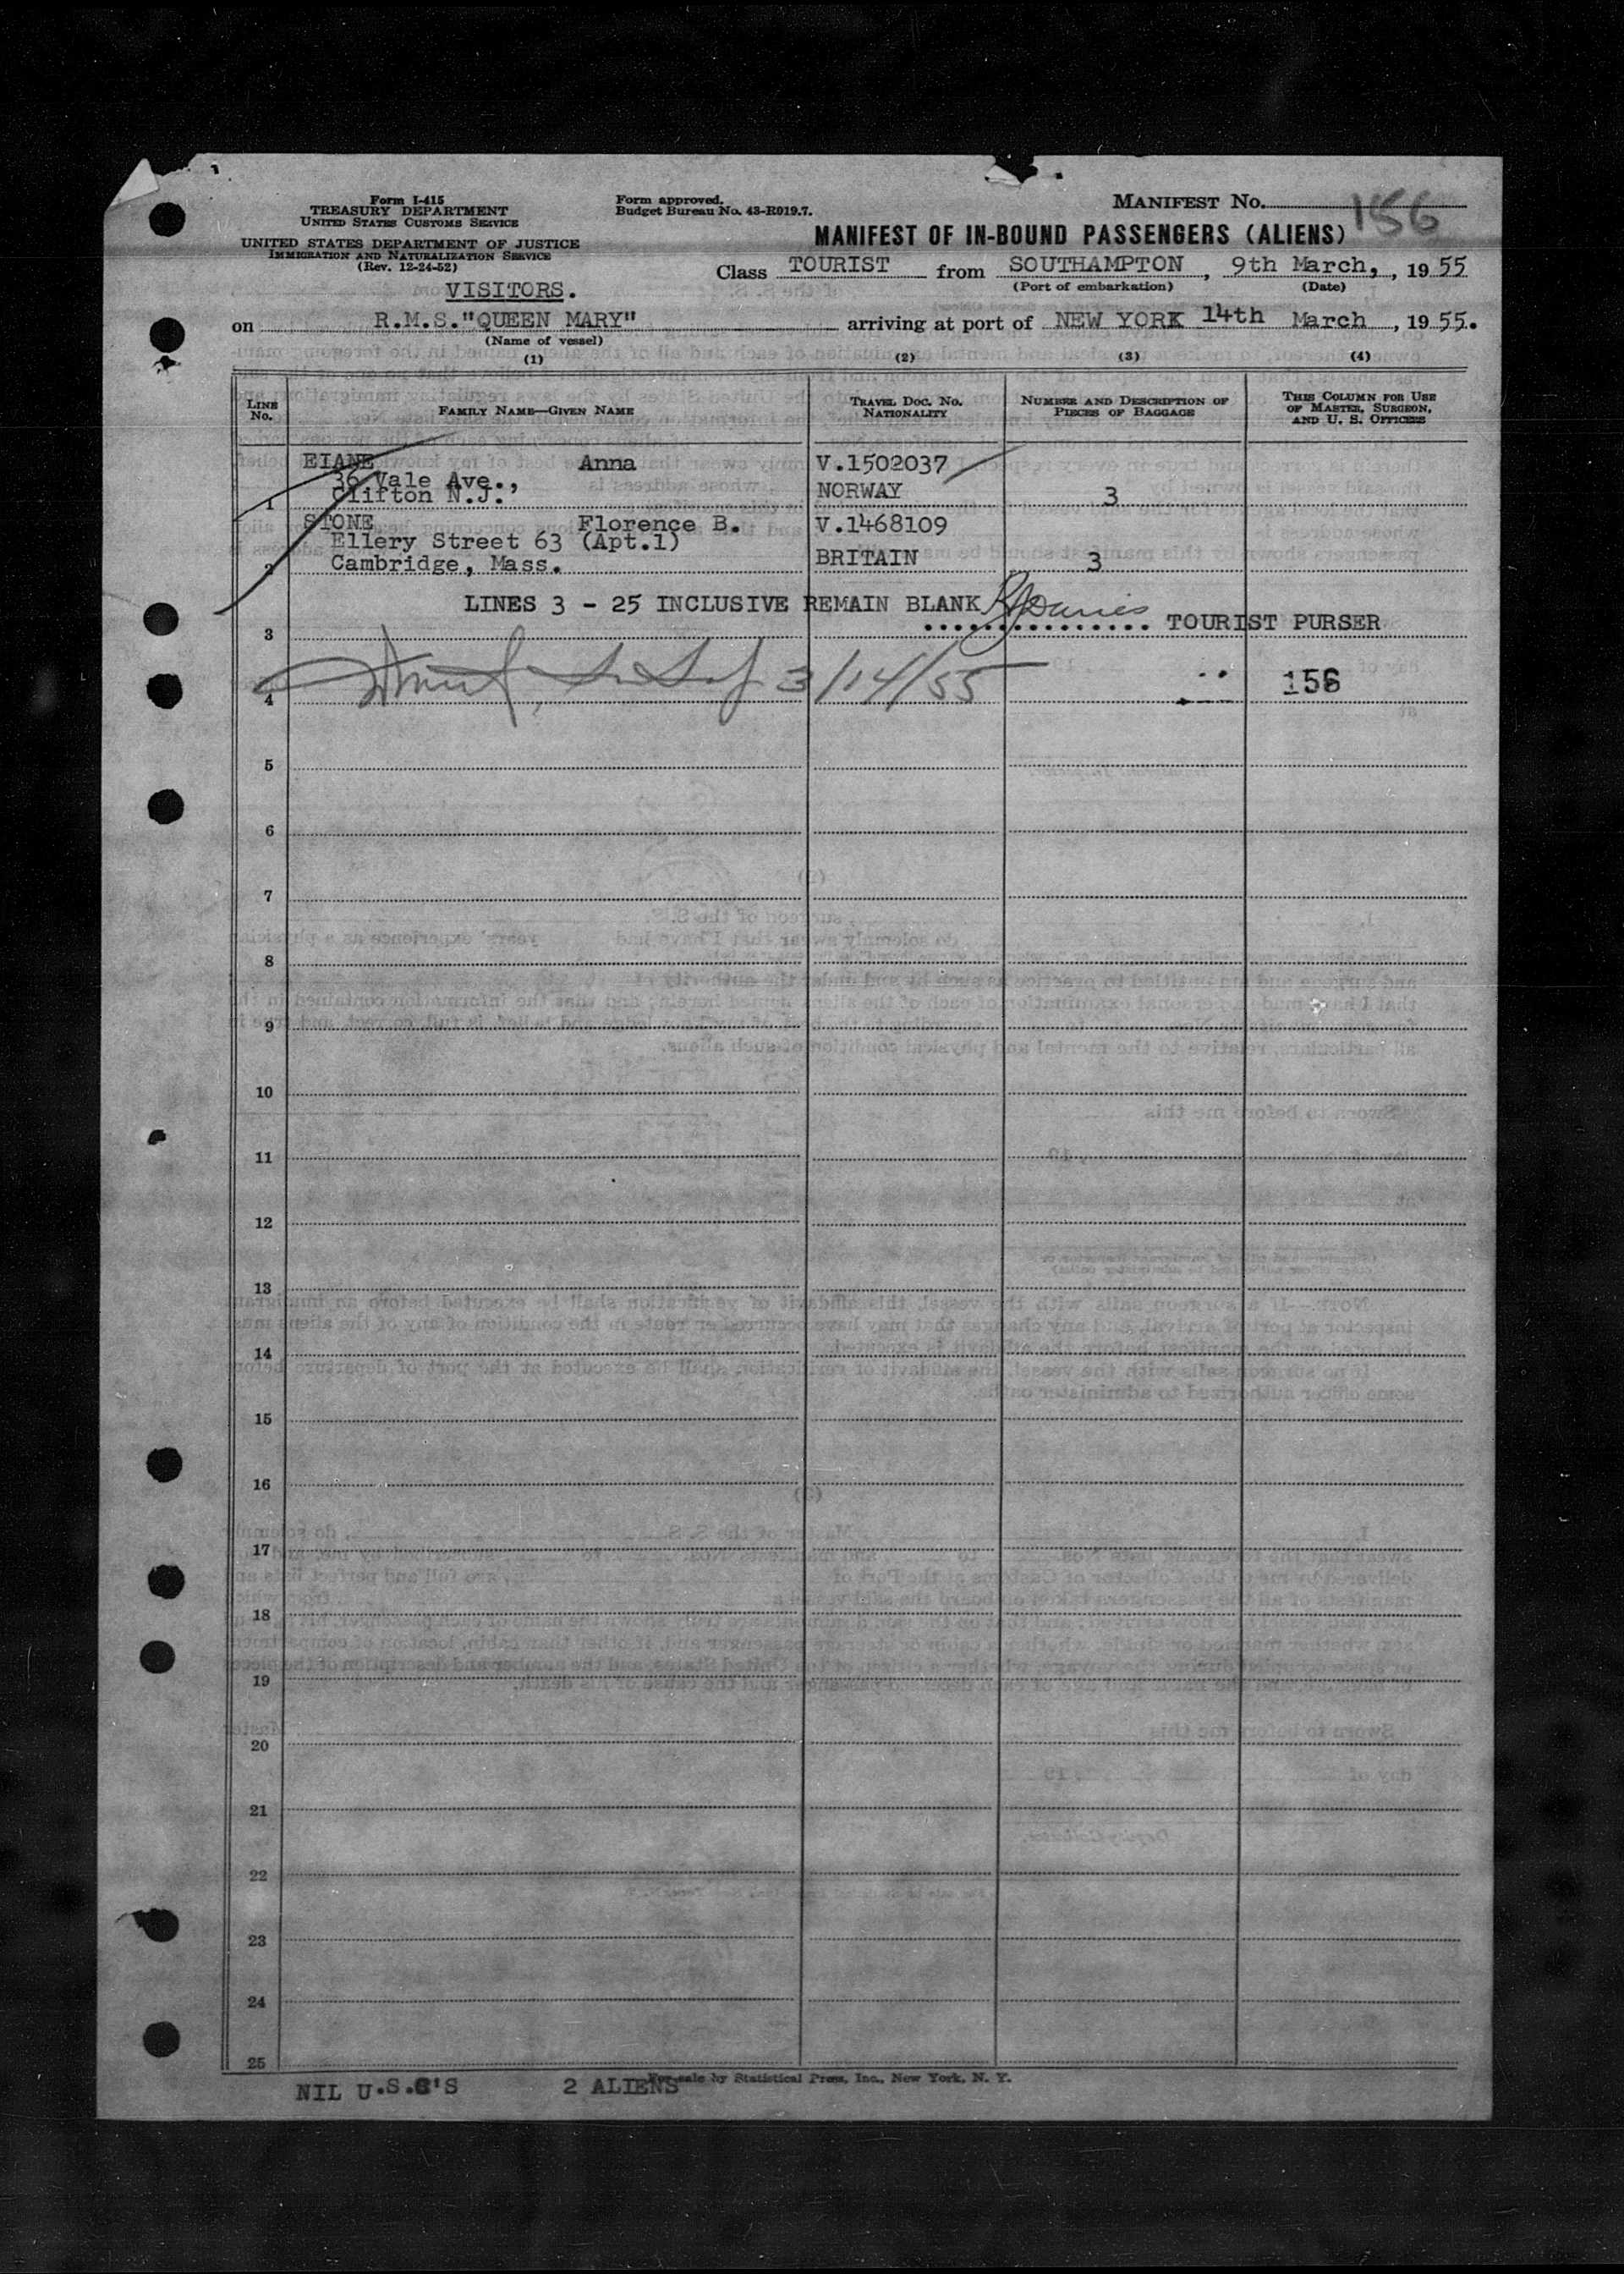 Form I-415
TREASURY DEPARTMENT
UNITED STATES CUSTOMS SERVICE
UNITED STATES DEPARTMENT OF JUSTICE
IMMIGRATION AND NATURALIZATION SERVICE
(Rev. 12-24-52)
Form approved.
Budget Bureau No. 43-R019.7.
MANIFEST No. 156
MANIFEST OF IN-BOUND PASSENGERS (ALIENS)
Class TOURIST from SOUTHAMPTON, 9th March, 1955
(Port of embarkation) (Date)
VISITORS.
on R.M.S."QUEEN MARY" arriving at port of NEW YORK 14th March, 1955.
(Name of vessel)
(1) (2) (3) (4)
LINE No. FAMILY NAME—GIVEN NAME TRAVEL DOC. No. NATIONALITY NUMBER AND DESCRIPTION OF PIECES OF BAGGAGE THIS COLUMN FOR USE OF MASTER, SURGEON, AND U. S. OFFICERS
EIANE Anna V.1502037
36 Vale Ave.,
1 Clifton N.J. NORWAY 3
STONE Florence B. V.1468109
Ellery Street 63 (Apt.1)
2 Cambridge, Mass. BRITAIN 3
LINES 3 - 25 INCLUSIVE REMAIN BLANK
3 Davies TOURIST PURSER
4 3/14/55 156
5
6
7
8
9
10
11
12
13
14
15
16
17
18
19
20
21
22
23
24
25
For sale by Statistical Press, Inc., New York, N. Y.
NIL U.S.C'S 2 ALIENS